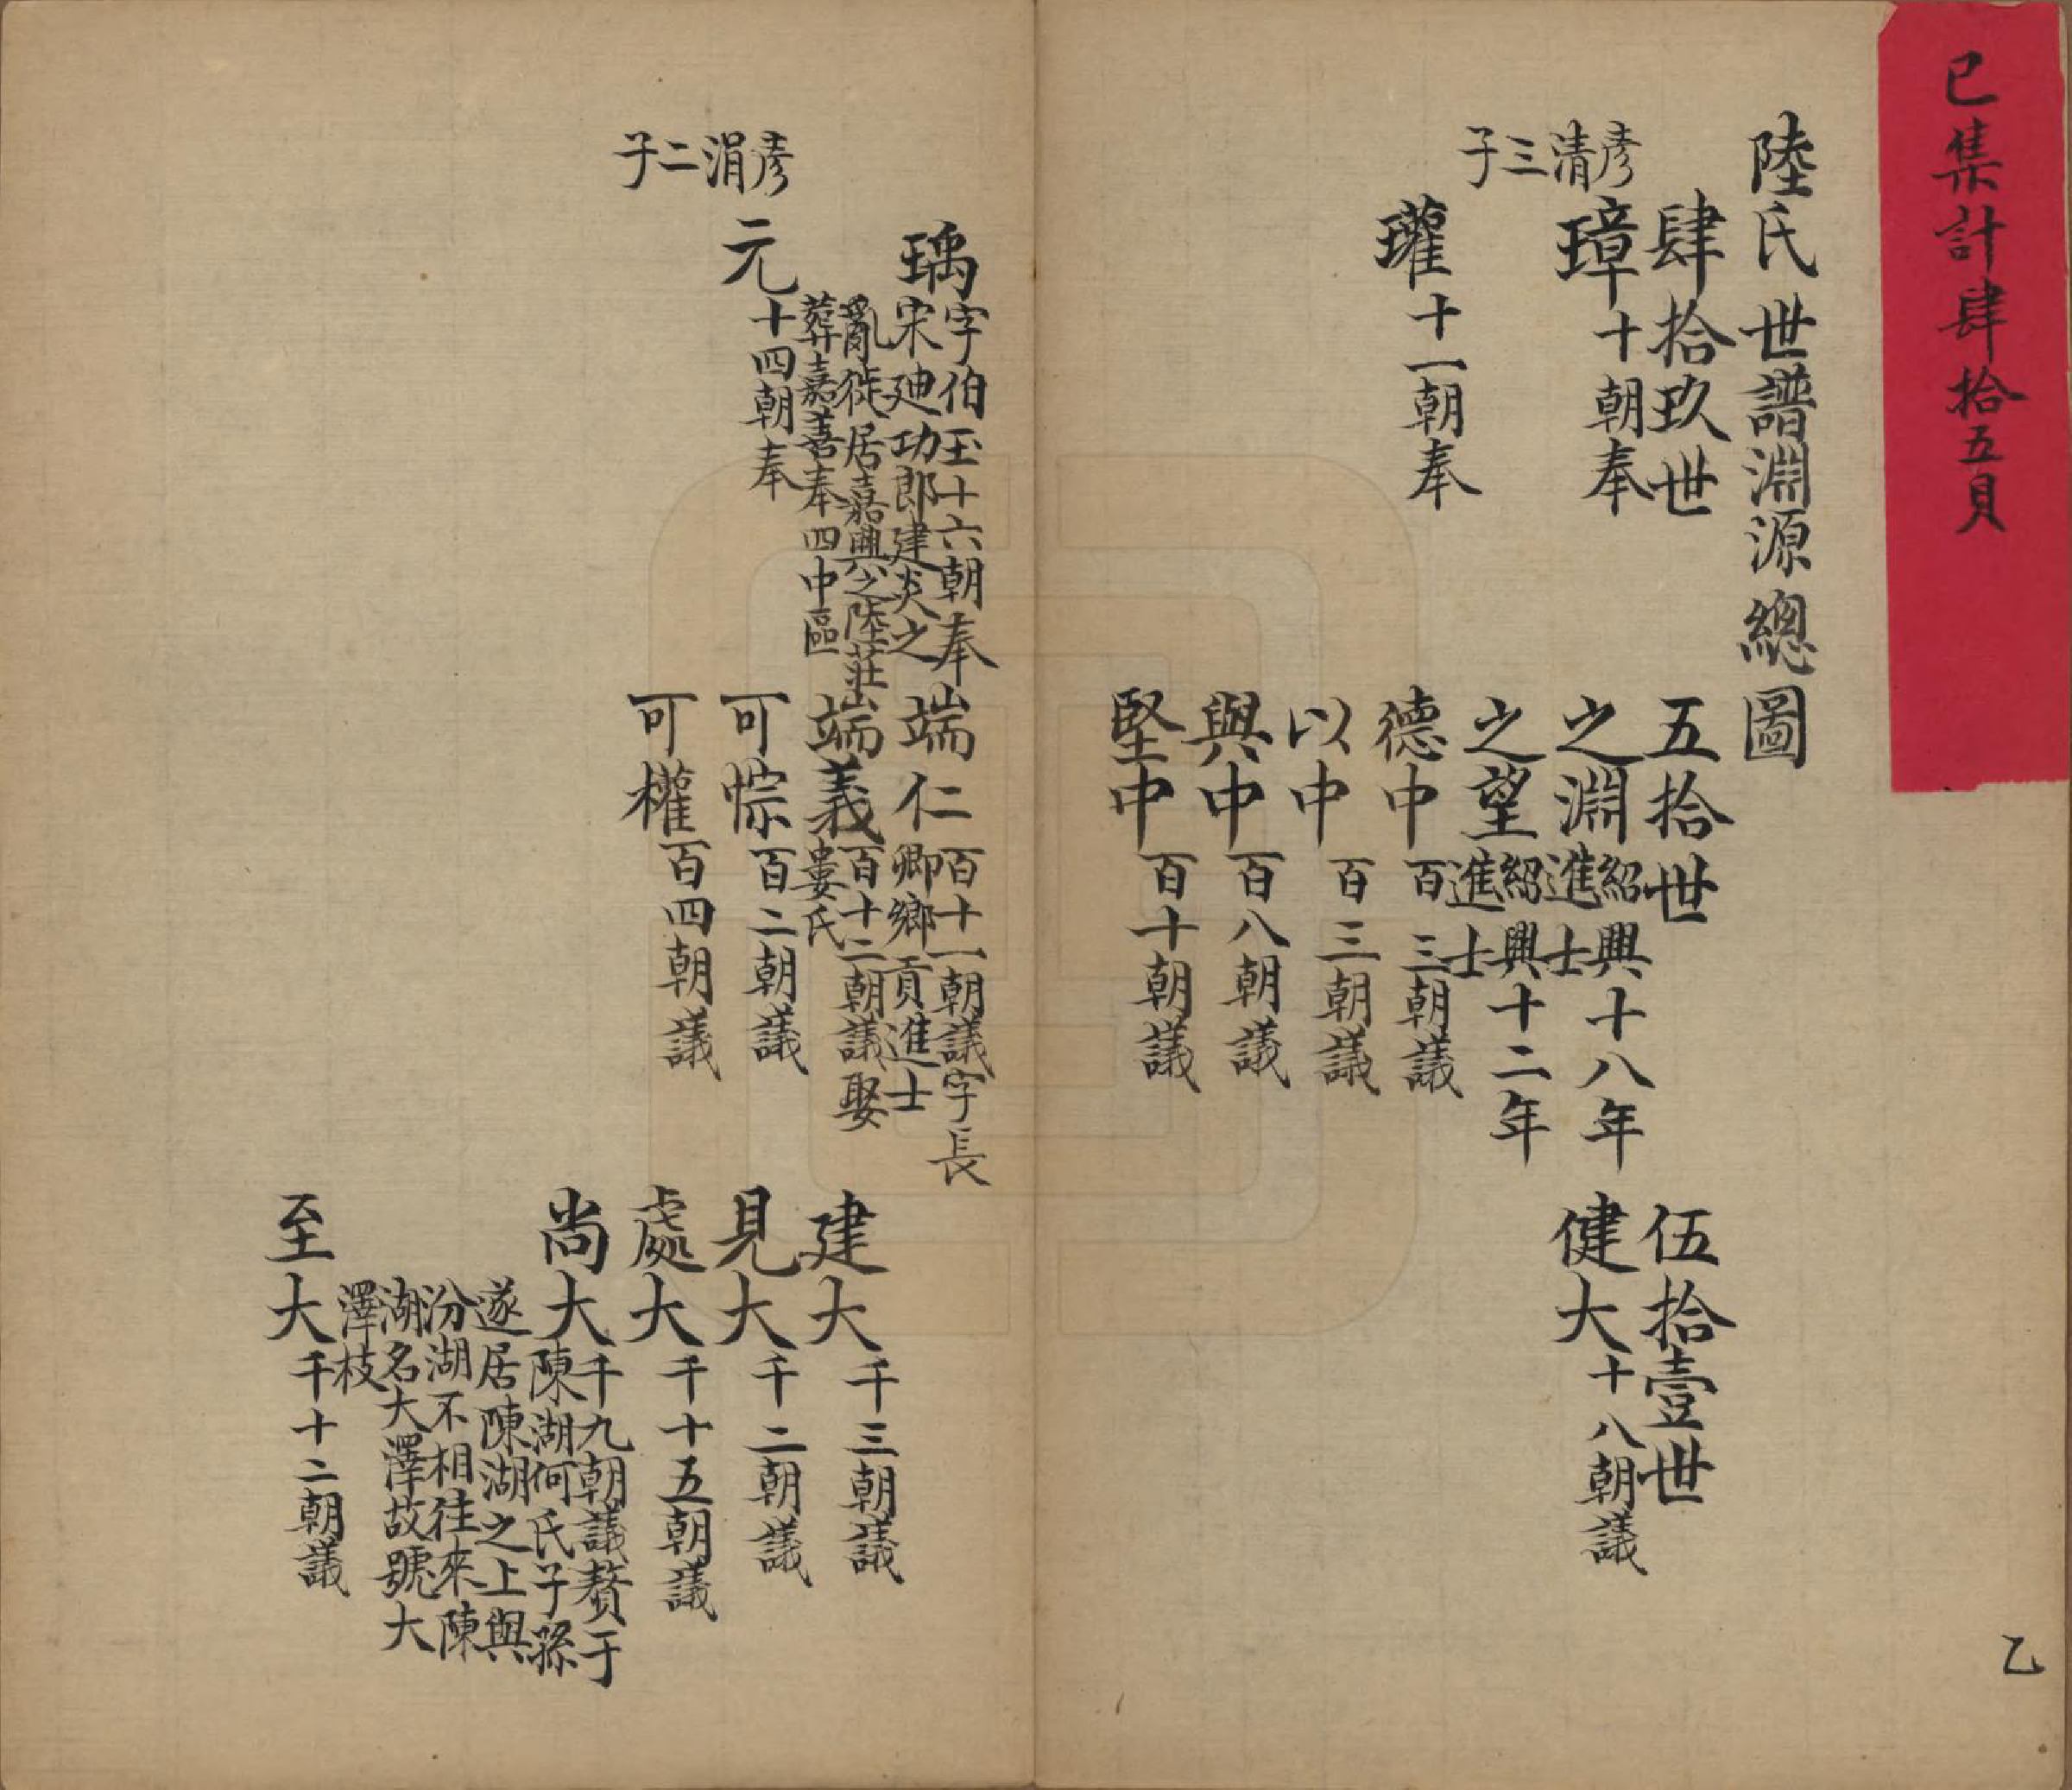 已集計肆拾五頁
乙
陸氏世譜淵源總圖
肆拾玖世
五拾世
伍拾壹世
彥清三子
璋十朝奉
之淵紹興十八年
進士
健大十八朝議
之望紹興十二年
進士
瓘十一朝奉
德中百三朝議
以中百三朝議
與中百八朝議
堅中百十朝議
瑀字伯玉十六朝奉
宋廸功郎建炎之
亂徙居嘉興之陸莊
葬嘉善奉四中區
端仁百十一朝議字長
卿鄉貢進士
端義百十二朝議娶
婁氏
建大千三朝議
彥涓二子
元十四朝奉
可悰百二朝議
見大千二朝議
可權百四朝議
處大千十五朝議
尚大千九朝議贅于
陳湖何氏子孫
遂居陳湖之上與
汾湖不相往來陳
湖名大澤故號大
澤枝
至大千十二朝議